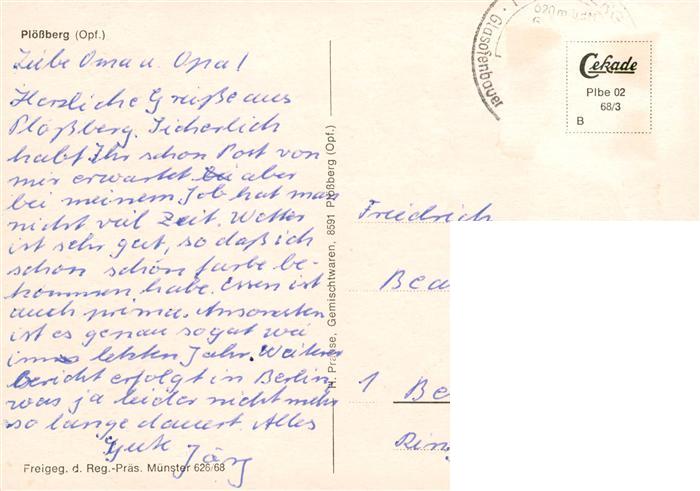 Plößberg (Opf.)
Liebe Oma u. Opa!
Herzliche Grüße aus
Plößberg. Sicherlich
habt Ihr schon Post von
mir erwartet aber
bei meinem Job hat man
nicht viel Zeit. Wetter
ist sehr gut, so daß ich
schon schön farbe be-
kommen habe. Essen ist
auch prima. Ansonsten
ist es genau so gut wie
im letzten Jahr. Weiterer
bericht erfolgt in Berlin,
was ja leider nicht mehr
so lange dauert. Alles
Gute Jörg
Freigeg. d. Reg.-Präs. Münster 626/68
H. Prasse, Gemischtwaren, 8591 Plößberg (Opf.)
Glasofenbauer
Cekade
Plbe 02
68/3
B
Friedrich
Bea
1 Be
Ring